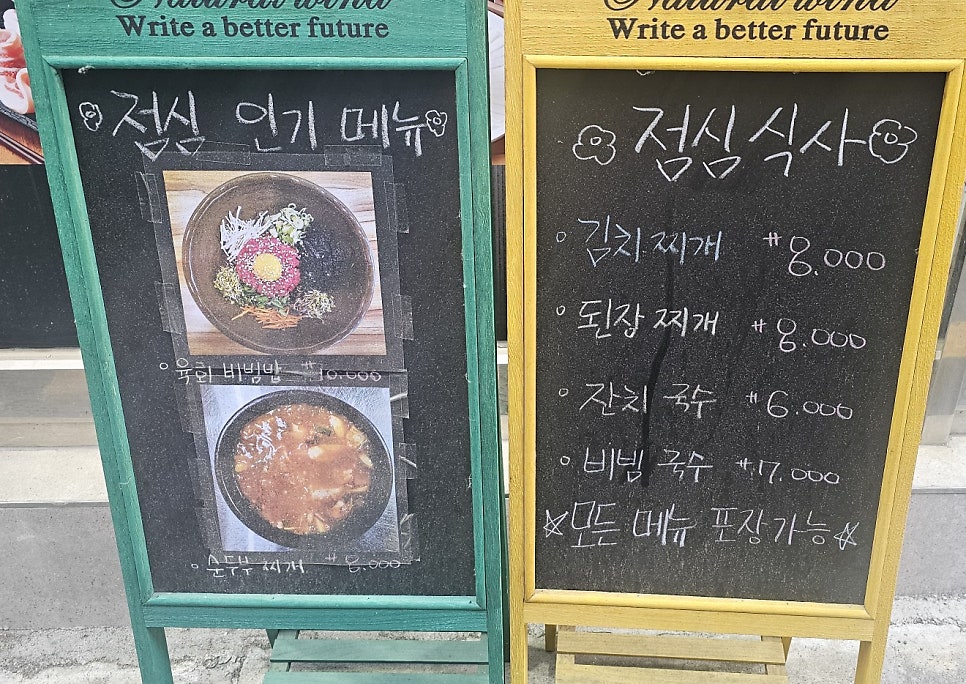 Natural wind
Write a better future
점심 인기 메뉴
육회 비빔밥 ₩10.000
순두부 찌개 ₩8.000
Natural wind
Write a better future
점심식사
김치찌개 ₩8.000
된장찌개 ₩8.000
잔치 국수 ₩6.000
비빔 국수 ₩7.000
☆모든 메뉴 포장가능☆